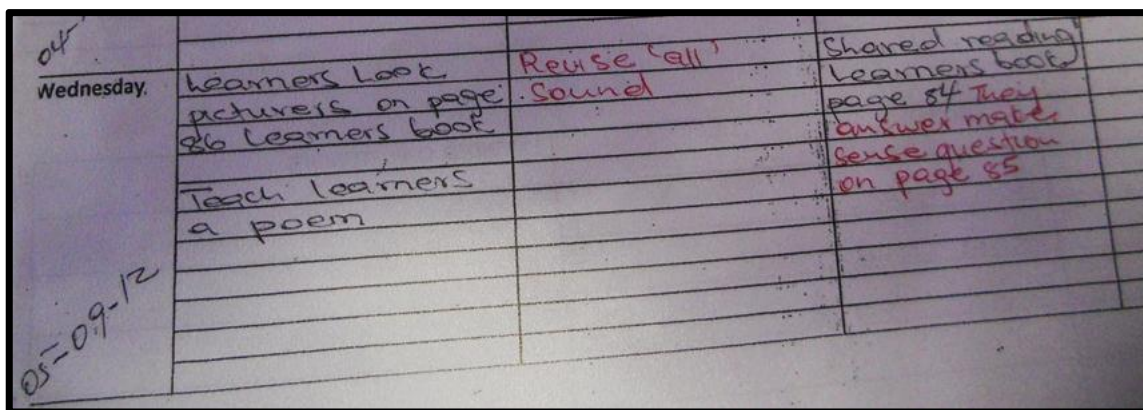 04-
Wednesday.
05-09-12
Learners Look
picturers on page
86 Learners book
Teach learners
a poem
Revise 'all'
Sound
Shared reading
Learners book
page 84 They
answer make
sense question
on page 85